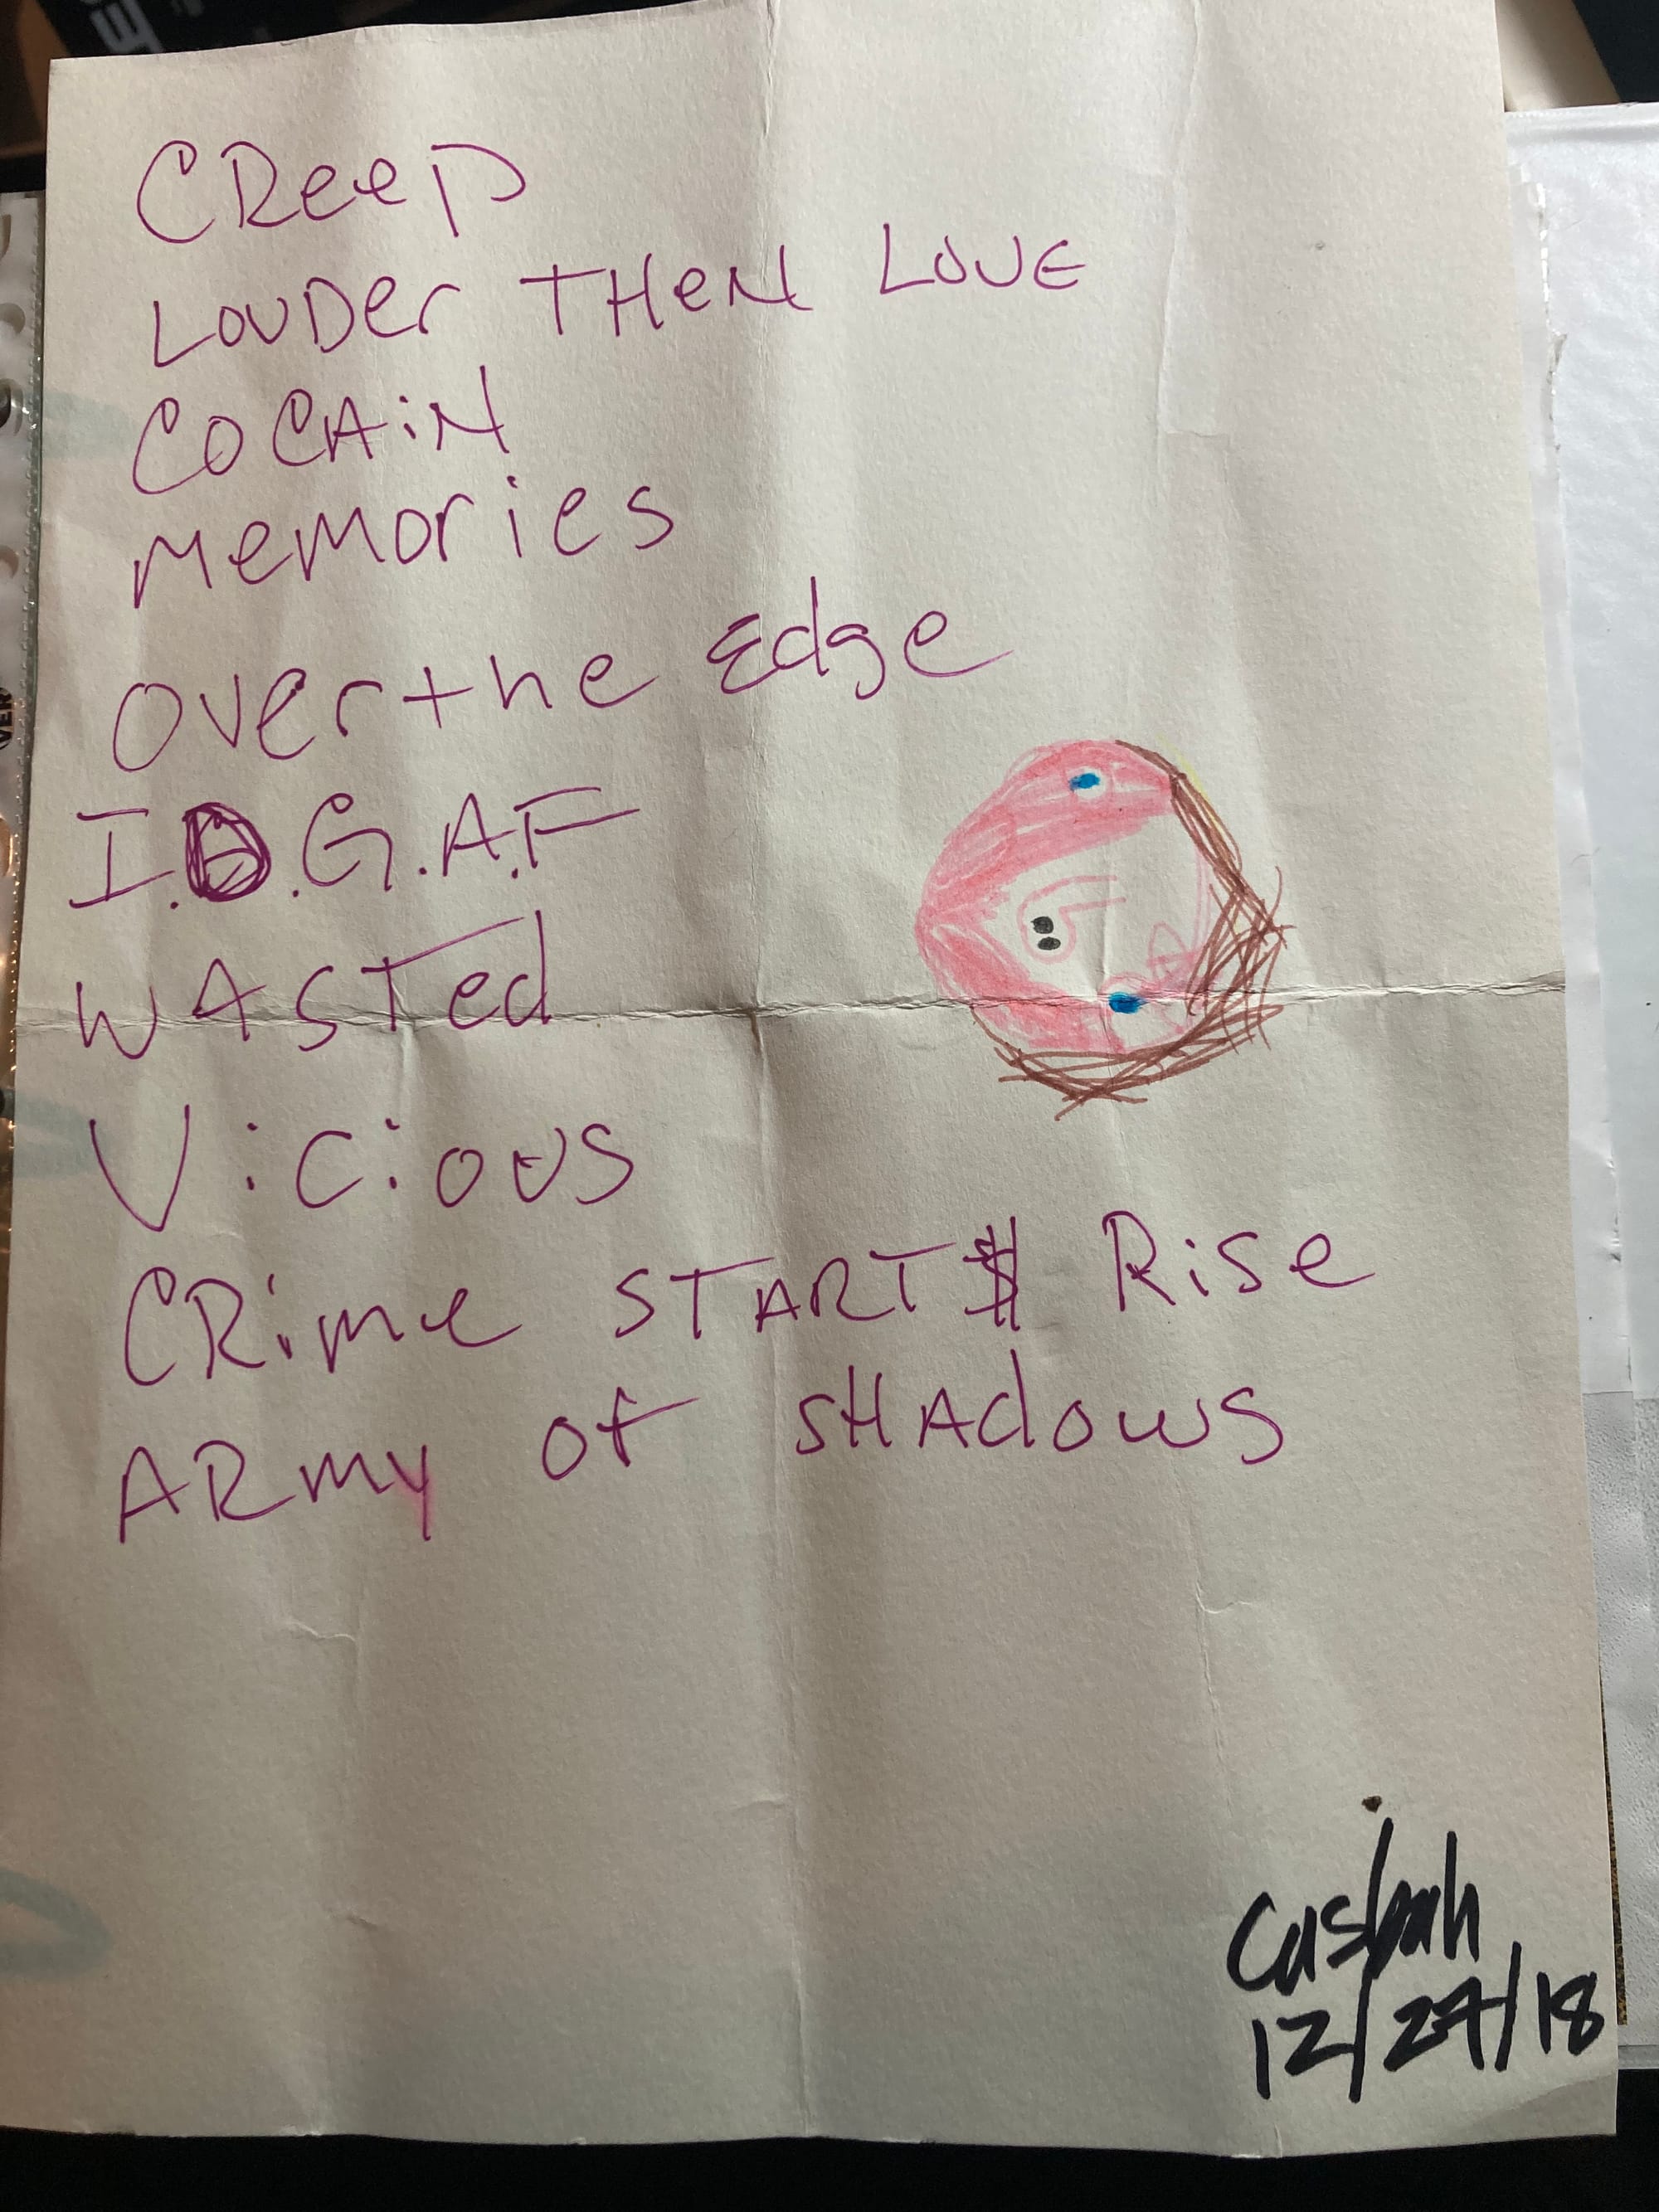 CReeP
LOUDer THeN LOVE
COCAiN
Memories
Over the Edge
I.D.G.A.F
WASTed
ViCiOUS
CRime START$ Rise
ARmy of SHAdows
Casbah
12/27/18